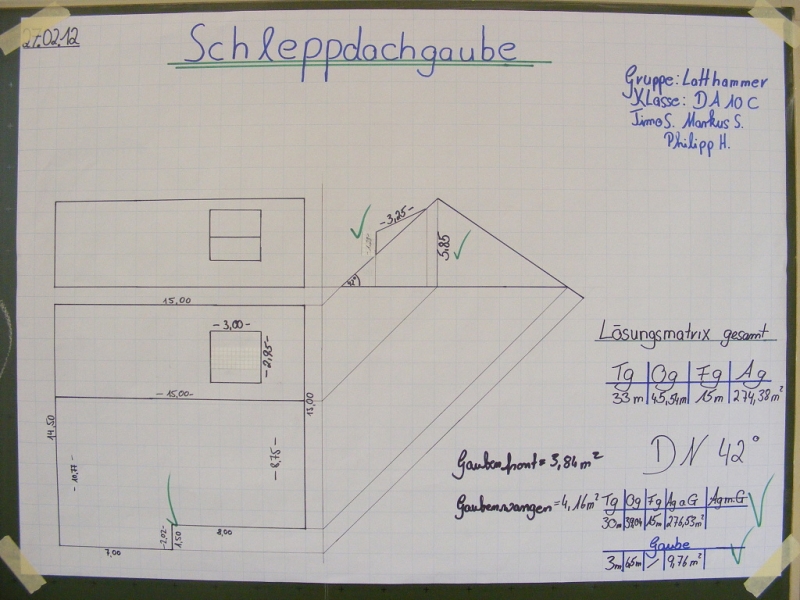 27.02.12
Schleppdachgaube
Gruppe: Latthammer
Klasse: DA10C
Timo S. Markus S.
Philipp H.
-3,25-
5,85
42°
15,00
-3,00-
-2,95-
-15,00-
13,00
14,50
-10,77-
-8,75-
-2,02-
1,50
8,00
7,00
Lösungsmatrix gesamt
Tg Og Fg Ag
33m 45,54m 15m 274,38m²
DN 42°
Gaubenfront = 3,84m²
Gaubenwangen = 4,16m²
Tg Og Fg Ag o G Ag m. G
30m 39,04 15m 276,53m²
Gaube
3m 6,5m / 9,76m²